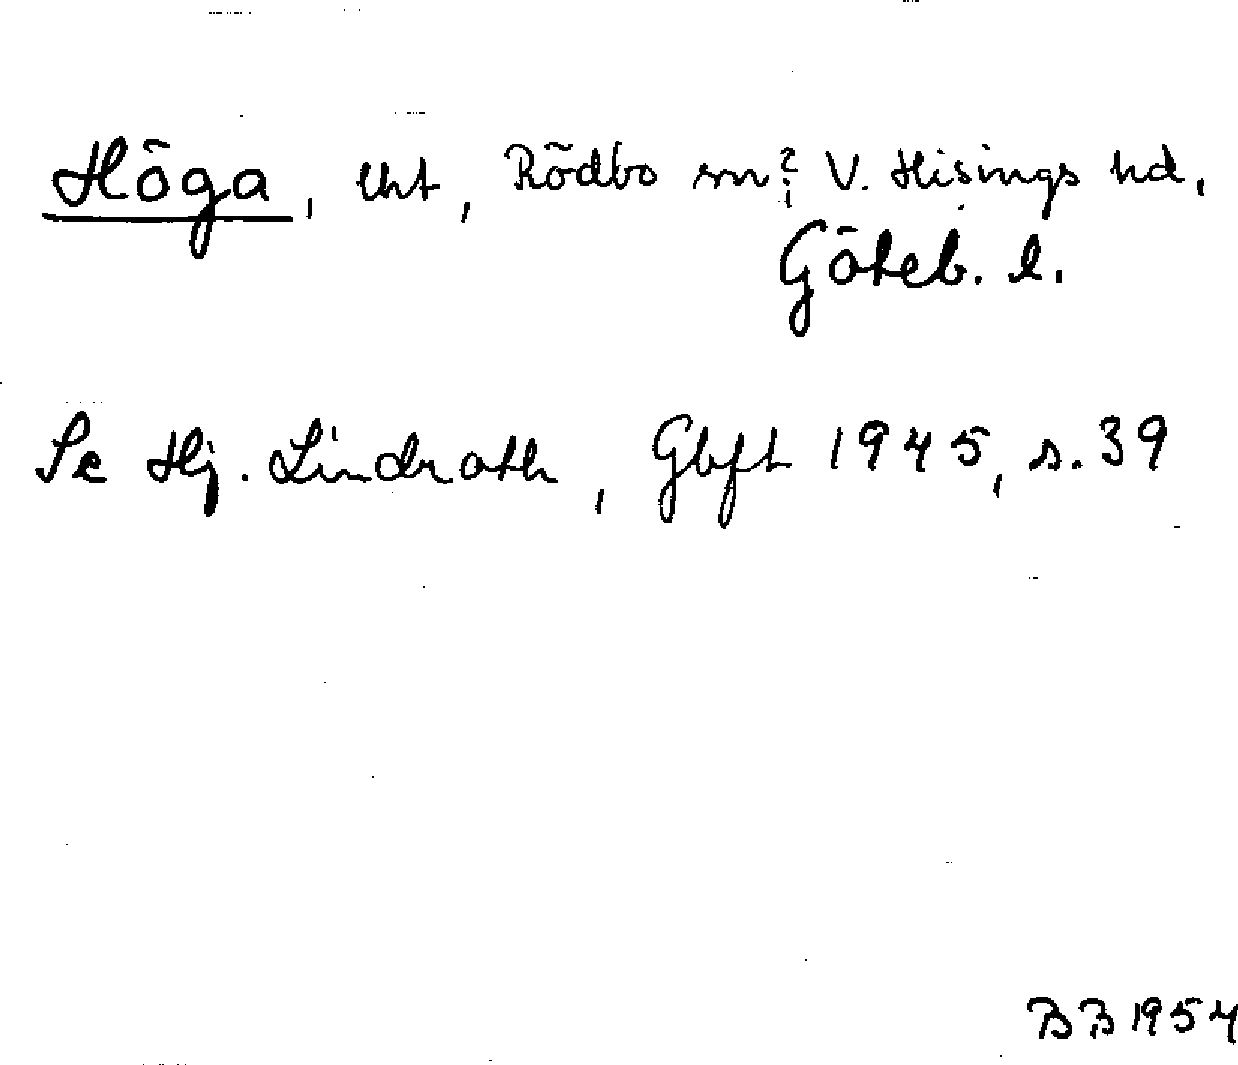 Höga, Rödbo sn? V. Hisings hd,
Göteb. l.
Se Hj. Lindroth, Gbft 1945, s. 39
BB 1954